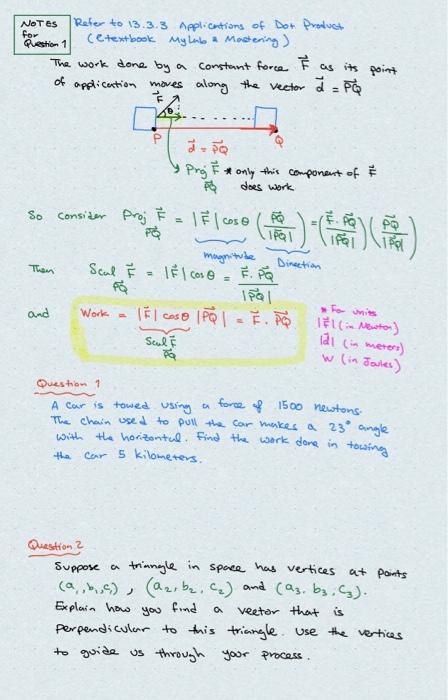 NOTES for Question 1
Refer to 13.3.3 Applications of Dot Product
(etextbook MyLab & Mastering)
The work done by a constant force F⃗ as its point
of application moves along the vector d⃗ = PQ⃗
F⃗
θ
P
Q
d⃗ = PQ⃗
Proj_PQ⃗ F⃗ * only this component of F⃗
does work
So consider Proj_PQ⃗ F⃗ = |F⃗| cos θ (PQ⃗ / |PQ⃗|) = (F⃗ · PQ⃗ / |PQ⃗|) (PQ⃗ / |PQ⃗|)
magnitude Direction
Then Scal_PQ⃗ F⃗ = |F⃗| cos θ = F⃗ · PQ⃗ / |PQ⃗|
and Work = |F⃗| cos θ |PQ⃗| = F⃗ · PQ⃗
Scal_PQ⃗ F⃗
* For units
|F⃗| (in Newton)
|d⃗| (in meters)
W (in Joules)
Question 1
A car is towed using a force of 1500 newtons.
The chain used to pull the car makes a 23° angle
with the horizontal. Find the work done in towing
the car 5 kilometers.
Question 2
Suppose a triangle in space has vertices at points
(a₁, b₁, c₁), (a₂, b₂, c₂) and (a₃, b₃, c₃).
Explain how you find a vector that is
perpendicular to this triangle. Use the vertices
to guide us through your process.